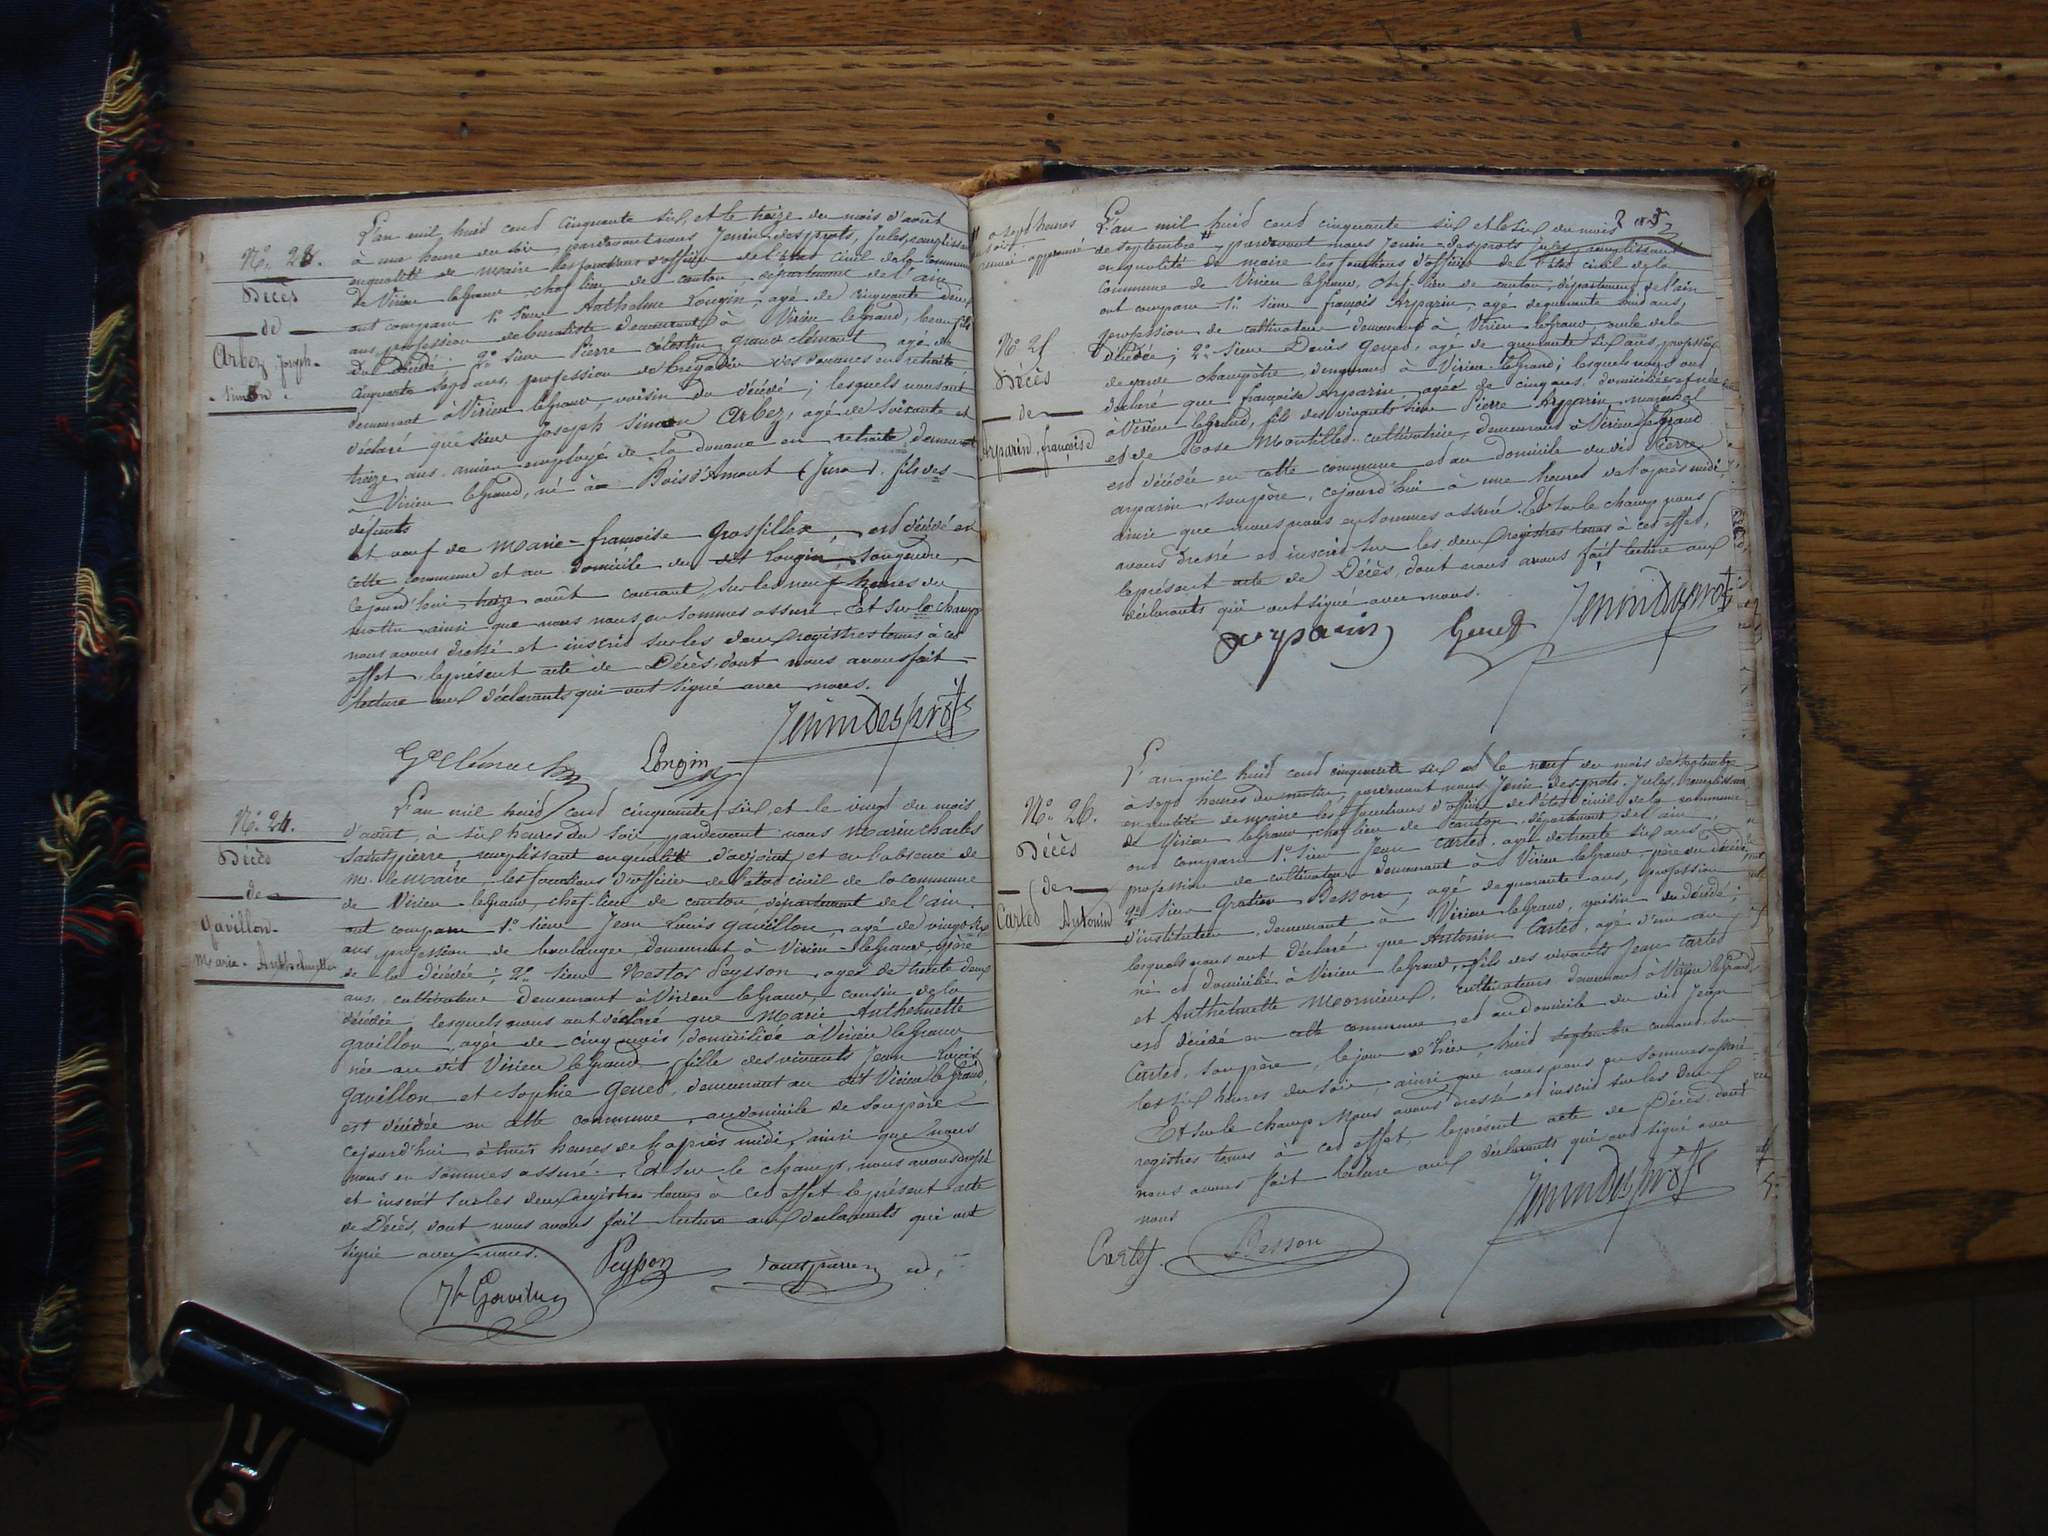 N.o 23.
Décès
de
Arbez, Joseph-
Simon.
L'an mil huid cend cinquante six, et le treize du mois d'août
à une heure du soir pardevant nous Jenin-desprots, Jules, remplissant
en qualité de maire les fonctions d'officier de l'état civil de la commune
de Virieu legrand, chef lieu de canton, département de l'ain,
ont comparu 1.o sieur Anthelme Longin, agé de cinquante deux
ans, profession de buraliste demeurant à Virieu legrand, beau fils
du décédé; 2.o sieur Pierre célestin grand clément, agé de
cinquante sepd ans, profession de brigadier des douanes en retraite
demeurant à Virieu-legrand, voisin du décédé; lesquels nous ont
déclaré que sieur Joseph Simon Arbez, agé de soixante et
treize ans ancien employé de la douane en retraite demeurant
à Virieu legrand, né à Bois d'Amont (Jura), fils des
défunts
et veuf de Marie-françoise Grosfillex esd décédé en
cette commune et au domicile du dit Longin, son gendre,
cejourd'hui treize août courant, sur les neuf heures du
matin, ainsi que nous nous en sommes assuré. Et sur le champ
nous avons dressé et inscrid sur les deux registres tenus à ced
effet, le présent acte de Décès, dont nous avons fait
lecture aux déclarants qui ont signé avec nous.
Jenindesprots
Gd Clément Longin
N.o 24.
Décès
de
Gavillon-
Marie-Anthelmette
L'an mil huid cend cinquante six, et le vingd du mois
d'août, à six heures du soir pardevant nous Marin charles
Saintpierre, remplissant en qualité d'adjoint, et en l'absence de
M. le Maire, les fonctions d'officier de l'état civil de la commune
de Virieu-legrand, chef-lieu de canton, département de l'ain,
ont comparu 1.o sieur Jean Louis Gavillon, agé de vingd-six
ans, profession de boulanger, demeurant à Virieu-legrand père
de la décédée; 2.o sieur Nestor Peysson, agés de trente deux
ans, cultivateur demeurant à Virieu legrand, cousin de la
décédée, lesquels nous ont déclaré que Marie Anthelmette
gavillon, agée de cinq mois, domiciliée à Virieu legrand
née au dit Virieu legrand, fille des vivants Jean Louis
gavillon et Sophie Gened, demeurant au dit Virieu le Grand,
est décédée en cette commune, au domicile de son père
cejourd'hui, à trois heures de l'après midi, ainsi que nous
nous en sommes assuré. Et sur le champ, nous avons dressé
et inscrit sur les deux registres tenus à ced effet le présent acte
de Décès, dont nous avons fait lecture aux déclarants qui ont
signé avec nous.
Jh Gavillon Peysson Saintpierre ad.
a sepd heures
soir
renvoi approuvé
N.o 25
Décès
de
Arparin, françoise
L'an mil huid cend cinquante six et le six du mois
de septembre pardevant nous Jenin-desprots jules remplissant
en qualité de maire les fonctions d'officier de l'état civil de la
commune de Virieu legrand, chef-lieu de canton, département de l'ain
ont comparu 1.o sieur françois Arparin, agé de quarante huid ans,
profession de cultivateur demeurant à Virieu-legrand, oncle de la
décédée; 2.o sieur Denis Gened, agé de quarante six ans, profession
de garde champêtre, demeurant à Virieu-legrand; lesquels nous ont
déclaré que françoise Arparin, agée de cinq ans, domiciliée et née
à Virieu-legrand, fils des vivants sieur Pierre Arparin, marechal
et de Rose Montillet cultivatrice, demeurans à Virieu legrand
esd décédée en cette commune et au domicile du did Pierre
arparin, son père, cejourd'hui à une heures de l'après midi,
ainsi que nous nous en sommes assuré. Et sur le champ nous
avons dressé et inscrid sur les deux registres tenus à ced effet,
le présent acte de Décès, dont nous avons fait lecture aux
déclarants qui ont signé avec nous.
Arparin Gened Jenindesprots
N.o 26.
Décès
de
Carted Antonin
L'an mil huid cend cinquante six et le neuf du mois de septembre
à sepd heures du matin, pardevant nous Jenin desprots, Jules, remplissant
en qualité de maire les fonctions d'officier de l'état civil de la commune
de Virieu legrand, chef lieu de canton, département de l'ain,
ont comparu 1.o sieur Jean Carted, agé de trente six ans,
profession de cultivateur demeurant à Virieu legrand, père du décédé
2.o sieur Gratien Besson, agé de quarante ans, profession
d'instituteur, demeurant à Virieu legrand, voisin du décédé;
lesquels nous ont déclaré que Antonin Carted, agé d'un an
né et domicilié à Virieu legrand, fils des vivants Jean Carted
et Anthelmette Mormieux, cultivateurs demeurant à Virieu legrand,
esd décédé en cette commune et au domicile du did Jean
Carted, son père, le jour d'hier, huid septembre courant, sur
les six heures du soir, ainsi que nous nous en sommes assuré
Et sur le champ nous avons dressé et inscrid sur les deux
registres tenus à ced effet, le présent acte de Décès, dont
nous avons fait lecture aux déclarants qui ont signé avec
nous
Jenindesprots
Cartet. Besson